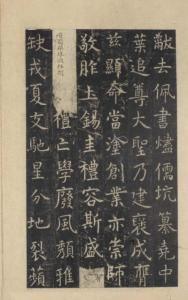 黻去佩書燼儒坑纂堯中
葉追尊大聖乃建褒成膺
兹顯命當塗創業亦崇師
敬胙土錫圭禮容斯盛
禮亡學廢風頹雅
缺戎夏交馳星分地裂蘋